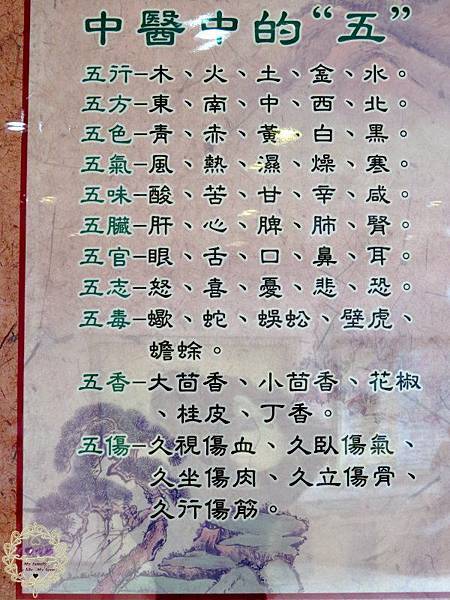 中醫中的“五”
五行—木、火、土、金、水。
五方—東、南、中、西、北。
五色—青、赤、黃、白、黑。
五氣—風、熱、濕、燥、寒。
五味—酸、苦、甘、辛、咸。
五臟—肝、心、脾、肺、腎。
五官—眼、舌、口、鼻、耳。
五志—怒、喜、憂、悲、恐。
五毒—蠍、蛇、蜈蚣、壁虎、
蟾蜍。
五香—大茴香、小茴香、花椒
、桂皮、丁香。
五傷—久視傷血、久臥傷氣、
久坐傷肉、久立傷骨、
久行傷筋。
My family